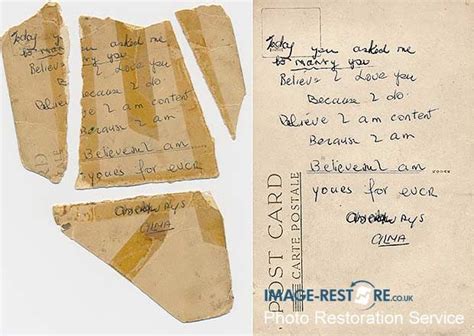 Today you asked me
to marry you
Believe I love you
Because I do
Believe I am content
Because I am
Believe I am
yours for ever
ALMA
Today you asked me
to marry you
Believe I love you
Because I do.
Believe I am content
Because I am
Believe I am .....
yours for ever
ALMA
POST CARD
CARTE POSTALE
IMAGE-RESTORE.CO.UK
Photo Restoration Service